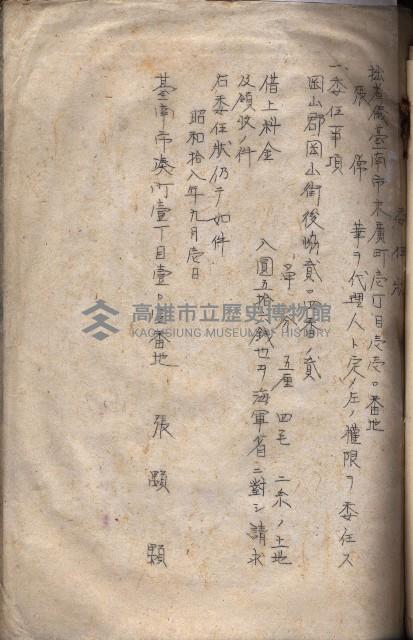 委任狀
拙者儀臺南市末廣町壱丁目壱壱〇番地
張偉華ヲ代理人ト定ノ左ノ權限ヲ委任ス
一、委任事項
岡山郡岡山街後協貳〇四番ノ貳
五厘四毛二糸ノ土地
借上料金
八圓五拾錢也ヲ海軍省ニ對シ請求
及領收ノ件
右委任狀仍テ如件
昭和拾八年九月壱日
臺南市湊町壹丁目壹〇番地 張顯顯
高雄市立歷史博物館
KAOHSIUNG MUSEUM OF HISTORY